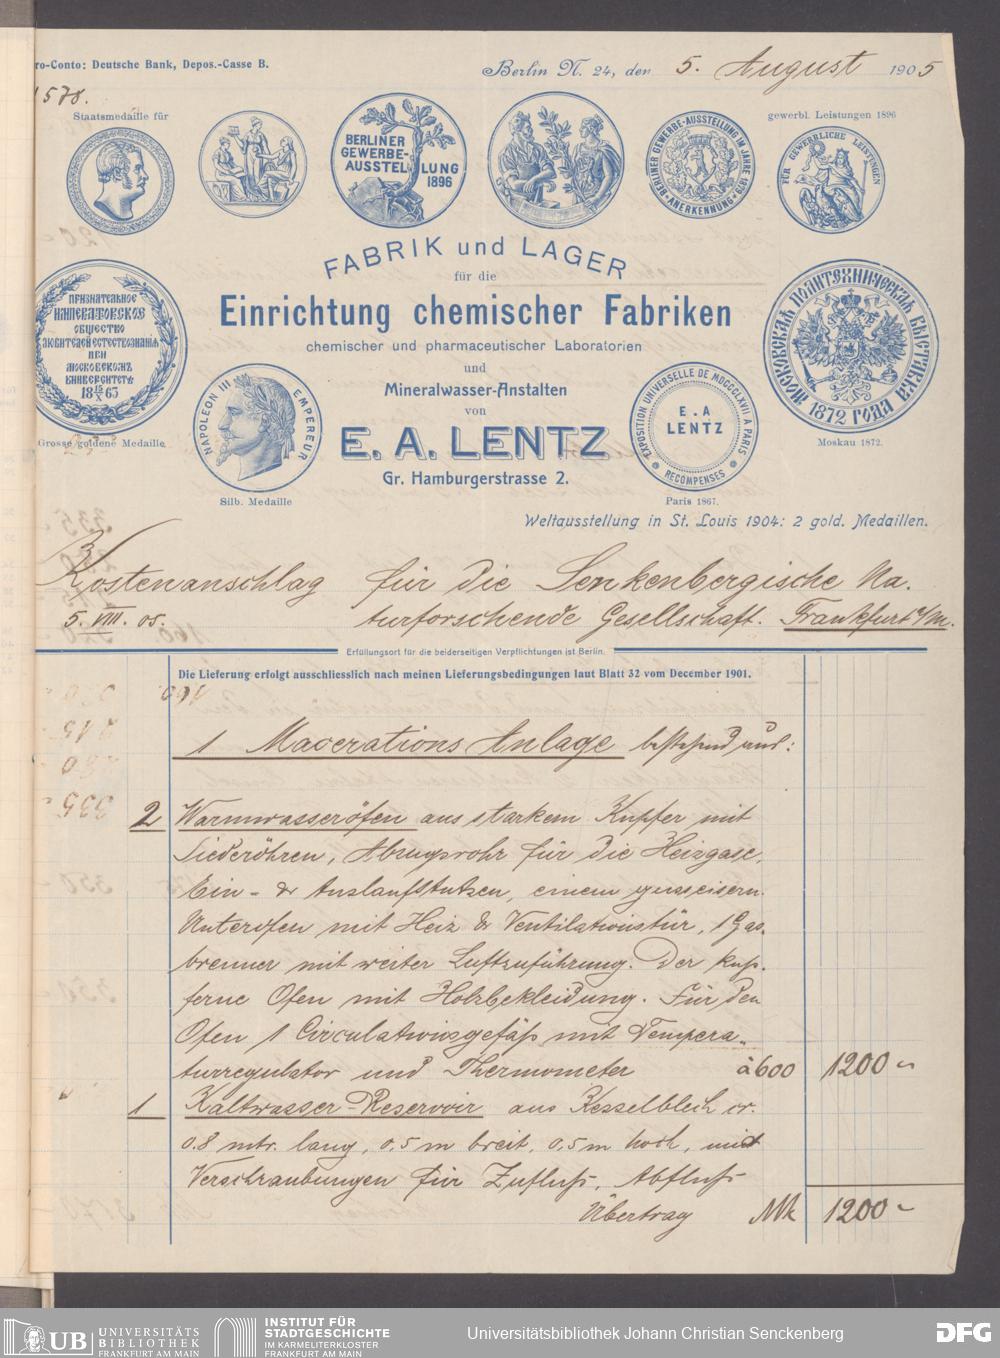 ro-Conto: Deutsche Bank, Depos.-Casse B.
Berlin N. 24, den 5. August 1905
1578.
Staatsmedaille für
gewerbl. Leistungen 1896
BERLINER
GEWERBE-
AUSSTELLUNG
1896
BERLINER GEWERBE-AUSSTELLUNG IM JAHRE 1879
ANERKENNUNG
FÜR GEWERBLICHE LEISTUNGEN
FABRIK und LAGER
für die
Einrichtung chemischer Fabriken
chemischer und pharmaceutischer Laboratorien
und
Mineralwasser-Anstalten
von
E. A. LENTZ
Gr. Hamburgerstrasse 2.
ПРИЗНАТЕЛЬНОЕ
ИМПЕРАТОРСКОЕ
ОБЩЕСТВО
ЛЮБИТЕЛЕЙ ЕСТЕСТВОЗНАНІЯ
ПРИ
МОСКОВСКОМЪ
УНИВЕРСИТЕТѢ
18 15/X 63
Grosse goldene Medaille
NAPOLEON III EMPEREUR
Silb. Medaille
EXPOSITION UNIVERSELLE DE MDCCCLXVII A PARIS
E. A
LENTZ
RECOMPENSES
Paris 1867.
МОСКОВСКАЯ ПОЛИТЕХНИЧЕСКАЯ ВЫСТАВКА
1872 ГОДА
Moskau 1872.
Weltausstellung in St. Louis 1904: 2 gold. Medaillen.
Kostenanschlag für die Senkenbergische Na-
5. VIII. 05. turforschende Gesellschaft. Frankfurt a/M.
Erfüllungsort für die beiderseitigen Verpflichtungen ist Berlin.
Die Lieferung erfolgt ausschliesslich nach meinen Lieferungsbedingungen laut Blatt 32 vom December 1901.
1 Macerations Anlage bestehend aus:
2 Warmwasseröfen aus starkem Kupfer mit
Siederöhren, Abzugsrohr für die Heizgase,
Ein- & Auslaufstutzen, einem gusseisern.
Unterofen mit Heiz & Ventilationstür, 1 Gas-
brenner mit weiter Luftzuführung. Der kup-
ferne Ofen mit Holzbekleidung. Für den
Ofen 1 Circulationsgefäß mit Tempera-
turregulator und Thermometer à 600 1200 -
1 Kaltwasser-Reservoir aus Kesselblech cr.
0.8 mtr. lang, 0,5 m breit, 0.5 m hoch, mit
Verschraubungen für Zufluß, Abfluß
Übertrag Mk 1200 -
UB UNIVERSITÄTS
BIBLIOTHEK
FRANKFURT AM MAIN
INSTITUT FÜR
STADTGESCHICHTE
IM KARMELITERKLOSTER
FRANKFURT AM MAIN
Universitätsbibliothek Johann Christian Senckenberg
DFG